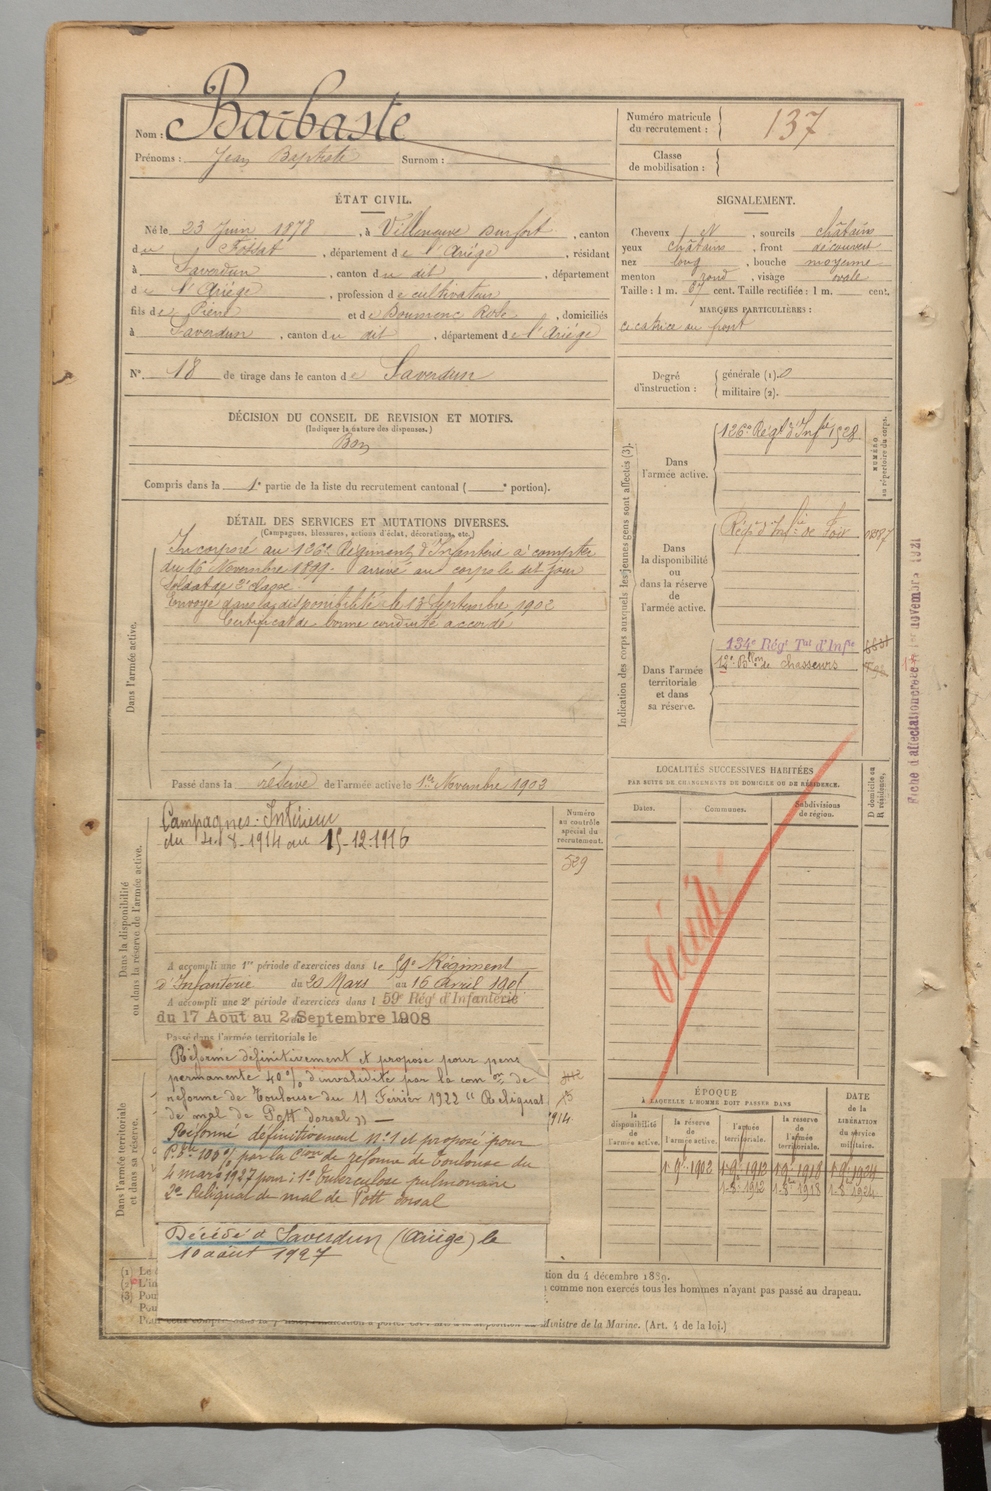 Nom : Barbaste
Prénoms : Jean Baptiste Surnom :
Numéro matricule du recrutement : 137
Classe de mobilisation :
ÉTAT CIVIL.
Né le 23 Juin 1878, à Villeneuve Durfort, canton
du Fossat, département de l'Ariège, résidant
à Saverdun, canton du dit, département
de l'Ariège, profession de cultivateur
fils de Pierre et de Boumenc Rose, domiciliés
à Saverdun, canton du dit, département de l'Ariège
N° 18 de tirage dans le canton de Saverdun
SIGNALEMENT.
Cheveux et, sourcils châtains
yeux châtains, front découvert
nez long, bouche moyenne
menton rond, visage ovale
Taille : 1 m. 67 cent. Taille rectifiée : 1 m. cent.
MARQUES PARTICULIÈRES :
cicatrice au front
Degré d'instruction : générale (1). 0
militaire (2).
DÉCISION DU CONSEIL DE REVISION ET MOTIFS.
(Indiquer la nature des dispenses.)
Bon
Compris dans la 1e partie de la liste du recrutement cantonal ( portion).
DÉTAIL DES SERVICES ET MUTATIONS DIVERSES.
(Campagnes, blessures, actions d'éclat, décorations, etc.)
Dans l'armée active.
Incorporé au 126e Régiment d'Infanterie à compter
du 16 Novembre 1899. arrivé au corps le dit jour
Soldat de 2e classe.
Envoyé dans la disponibilité le 13 Septembre 1902
Certificat de bonne conduite accordé
Passé dans la réserve de l'armée active le 1er Novembre 1903
Indication des corps auxquels les jeunes gens sont affectés (3).
NUMÉRO au répertoire du corps.
Dans l'armée active.
126e Régt d'Infie 1528
Dans la disponibilité ou dans la réserve de l'armée active.
Régt d'Infie de Foix
Dans l'armée territoriale et dans sa réserve.
134e Régt Tal d'Infie
12e Bllon de chasseurs
Fiche d'affectation
novembre 1921
Dans la disponibilité ou dans la réserve de l'armée active.
Campagnes - Intérieur
du 4.8.1914 au 15-12-1916
Numéro au contrôle spécial du recrutement.
529
A accompli une 1re période d'exercices dans le 59e Régiment
d'Infanterie du 20 Mars au 16 Avril 1905
A accompli une 2e période d'exercices dans l 59e Régt d'Infanterie
du 17 Août au 2 Septembre 1908
Passé dans l'armée territoriale le
Dans l'armée territoriale et dans sa réserve.
Réformé définitivement et proposé pour pens
permanente 40 % d'invalidité par la com on de
réforme de Toulouse du 11 Février 1922 "Reliquat
de mal de Pott dorsal" —
1914
Réformé définitivement n°1 et proposé pour
100 % par la Cion de réforme de Toulouse du
4 mars 1927 pour : 1° Tuberculose pulmonaire
2° Reliquat de mal de Pott dorsal
Décédé à Saverdun (Ariège) le
10 août 1927
LOCALITÉS SUCCESSIVES HABITÉES
PAR SUITE DE CHANGEMENTS DE DOMICILE OU DE RÉSIDENCE.
Dates. Communes. Subdivisions de région. D domicile ou R résidence.
décédé
ÉPOQUE
A LAQUELLE L'HOMME DOIT PASSER DANS
la disponibilité de l'armée active. la réserve de l'armée active. l'armée territoriale. la réserve de l'armée territoriale. DATE de la LIBÉRATION du service militaire.
1.9bre 1902 1.9bre 1912 1.9bre 1918 1.9bre 1924
1.8bre 1912 1.8bre 1918 1.8bre 1924
(1) Le
(2) L'in
(3) Pour
Pou
tion du 4 décembre 1889.
comme non exercés tous les hommes n'ayant pas passé au drapeau.
Ministre de la Marine. (Art. 4 de la loi.)